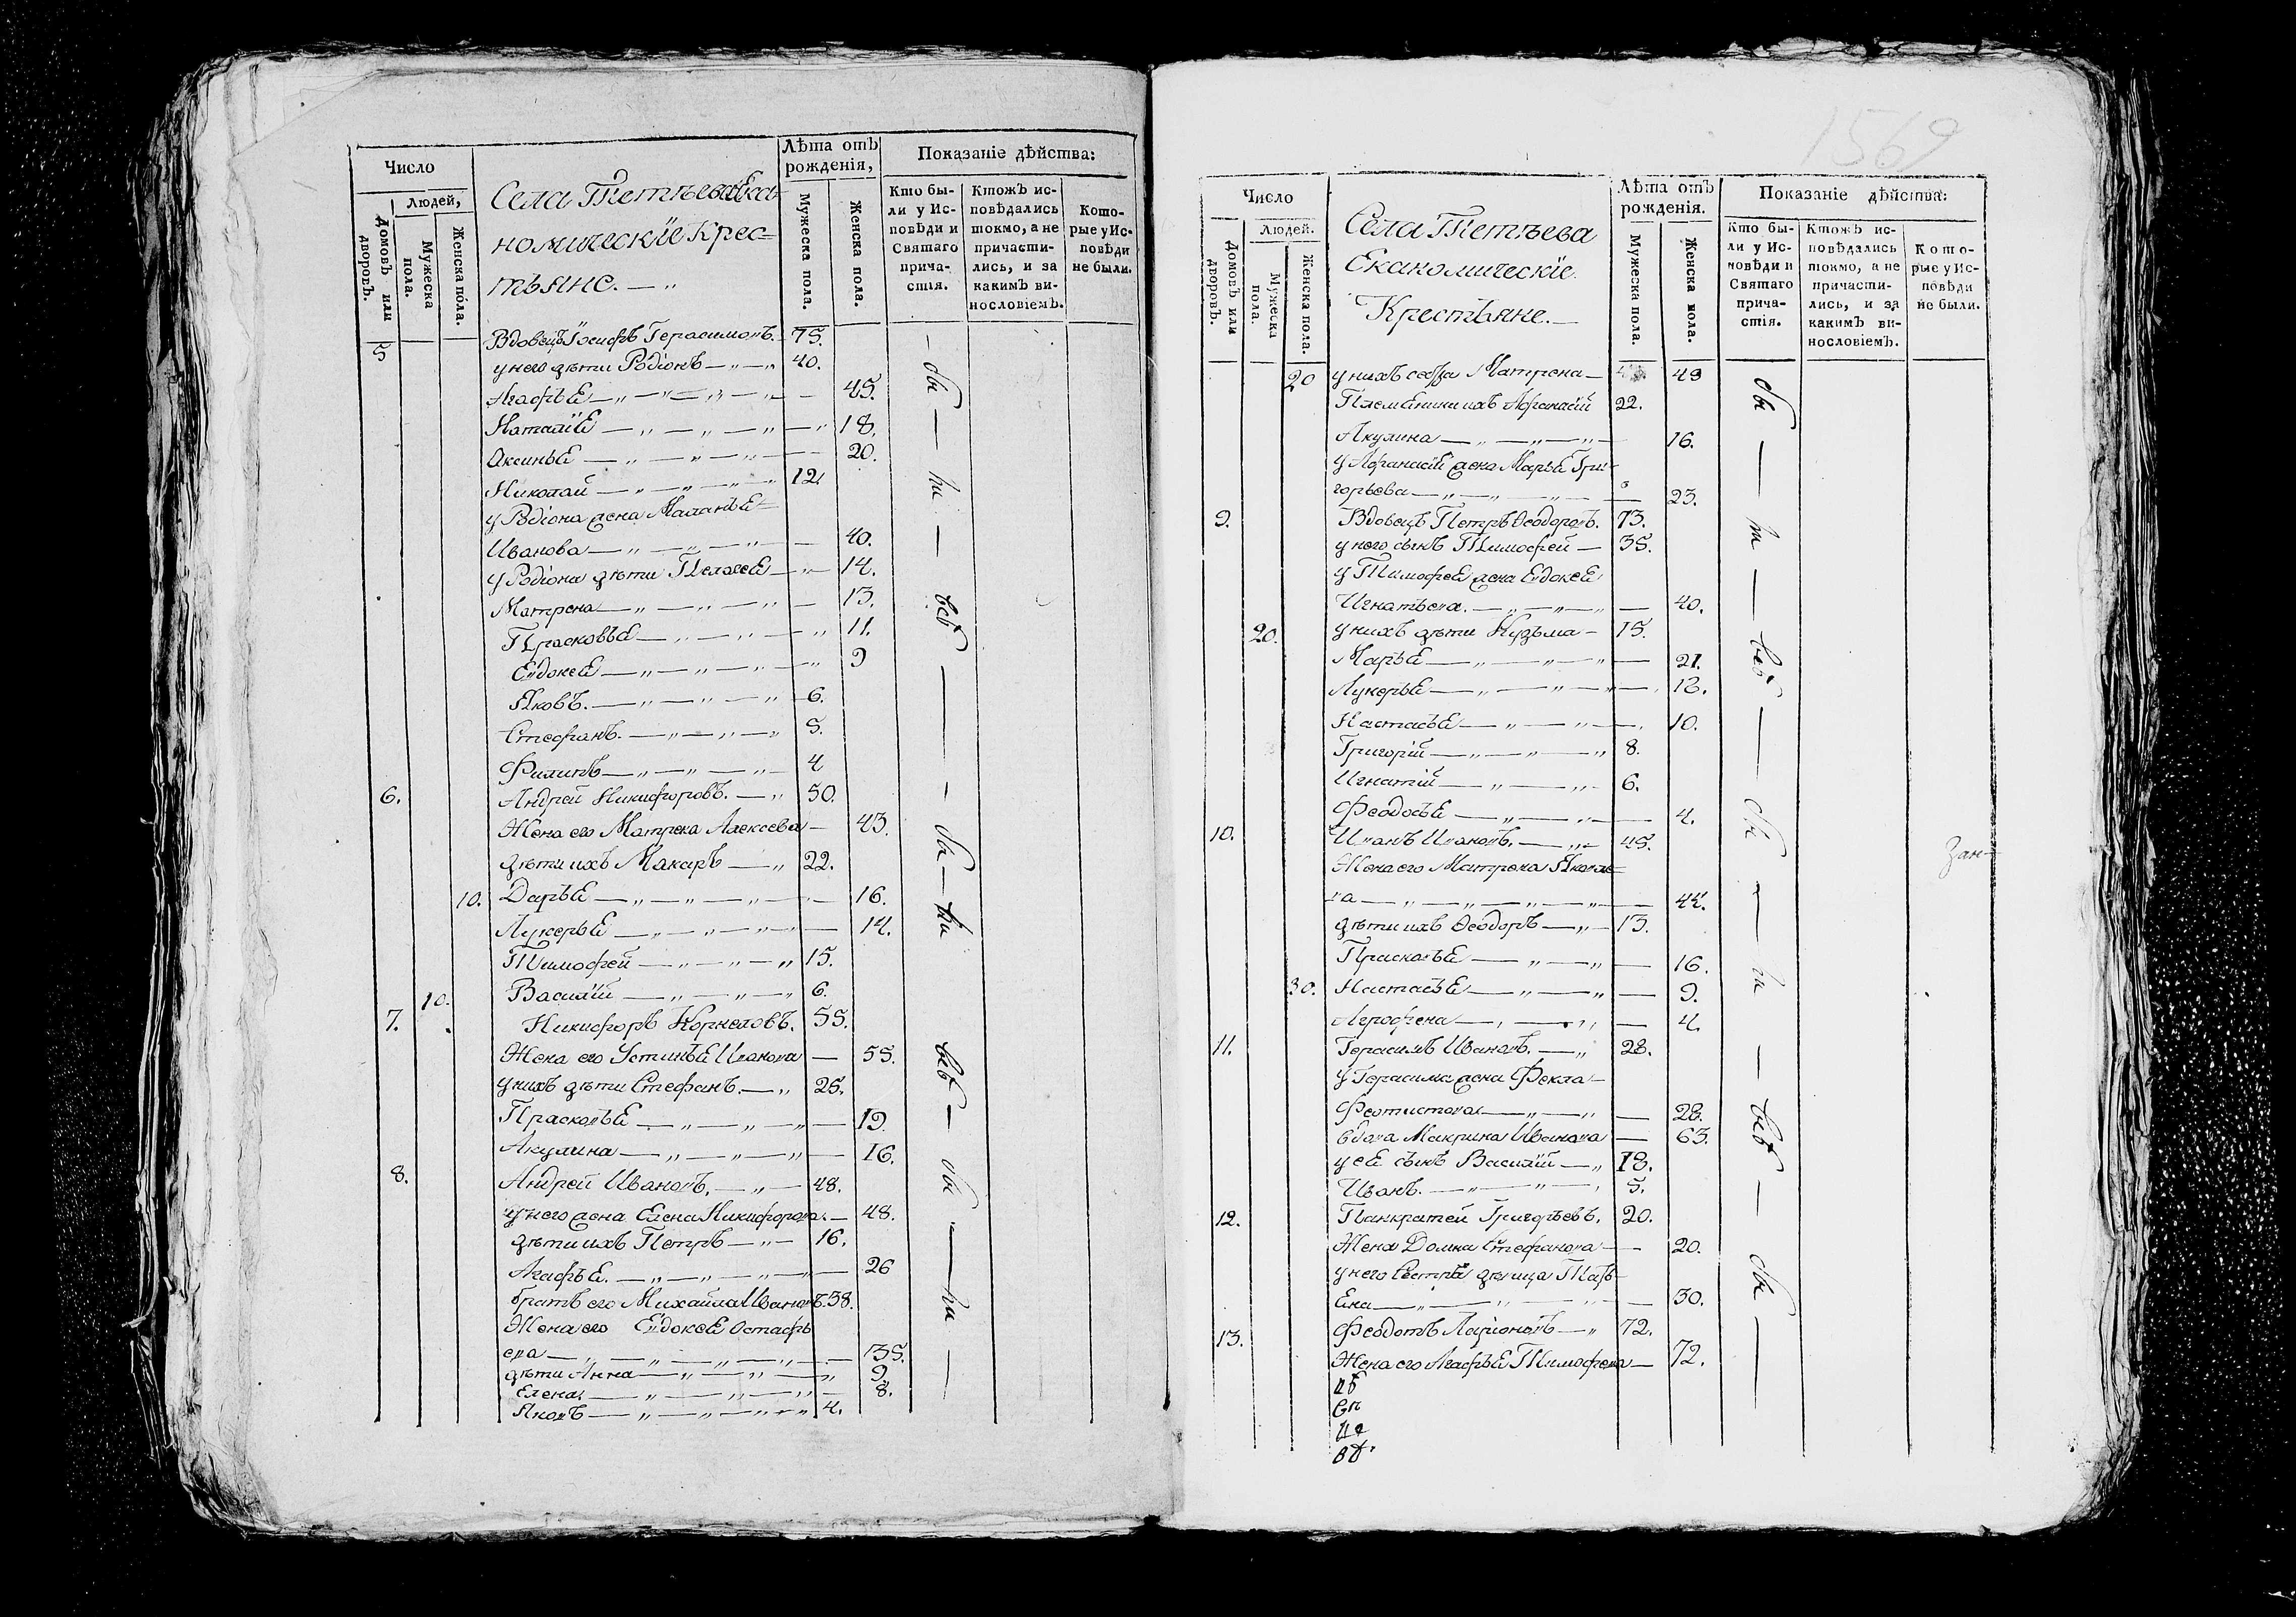 Число
Людей,
Домовъ или дворовъ.
Мужеска пола.
Женска пола.
Села Тетѣева Ека-
номическїе Крес=
тьяне.
Лѣта отъ рожденія,
Мужеска пола.
Женска пола.
Показаніе дѣйства:
Кто бы-
ли у Ис-
повѣди и
Святаго
прича-
стія.
Ктожъ ис-
повѣдались
токмо, а не
причасти-
лись, и за
какимъ ви-
нословіемъ.
Кото-
рые у Ис-
повѣди
не были.
5 Вдовецъ Iосифъ Герасимовъ. 75.
у него дѣти Родiонъ 40.
Агафьѧ 45.
Наталїѧ 18.
Аксиньѧ 20.
Николай 12.
у Родiона жена Маланьѧ=
Иванова 40.
у Родiона дѣти Пелагеѧ 14.
Матрена 13.
Прасковьѧ 11.
Евдокеѧ 9
Яковъ. 6.
Стефанъ. 5.
Филипъ 4
6. Андрей Никифоровъ. 50.
Жена его Матрена Алексева 43.
дѣти ихъ Макаръ 22.
10. Дарьѧ 16.
Лукерьѧ 14.
Тимофей 15.
10. Василїй 6.
7. Никифоръ Корнеловъ. 55.
Жена его Устиньѧ Иванова 55.
у нихъ дѣти Стефанъ. 25.
Прасковьѧ 19.
Акулина 16.
8. Андрей Ивановъ. 48.
у него жена Елена Никифорова. 48.
дѣти ихъ Петръ 16.
Агафьѧ. 26
братъ его Михайла Ивановъ. 38.
Жена его Евдокеѧ Остафь
ева 35.
дѣти Анна 9.
Елена 8.
Яковъ 4.
бы ли всѣ
бы ли всѣ
бы ли
1569
Число
Людей.
Домовъ или дворовъ.
Мужеска пола.
Женска пола.
Села Тетѣева
Екакомическїе
Крестьяне.
Лѣта отъ рожденія.
Мужеска пола.
Женска пола.
Показаніе дѣйства:
Кто бы-
ли у Ис-
повѣди и
Святаго
прича-
стія.
Ктожъ ис-
повѣдались
токмо, а не
причасти-
лись, и за
какимъ ви-
нословіемъ.
Кото-
рые у Ис-
повѣди
не были.
20 у нихъ сестра Матрена 49
Племѧники ихъ Афанасїй 22.
Акулина 16.
у Афанасїѧ жена Марьѧ Гри=
горьева 23.
9. Вдовецъ Петръ Ѳеодоровъ. 73.
у него сынъ Тимофей 35.
у Тимофеѧ жена Евдокеѧ
Игнатьева. 40.
20. у нихъ дѣти Кузьма 15.
Марьѧ 21.
Лукерьѧ 13.
Настасьѧ 10.
Григорїй 8.
Игнатїй 6.
Феодосьѧ 4.
10. Иванъ Ивановъ. 45.
Жена его Матрена Яковле=
ва 44.
дѣти ихъ Ѳеодоръ 13.
Прасковьѧ 16.
30. Настасьѧ 9.
Агрофена 4.
11. Герасимъ Ивановъ. 28.
у Герасима жена Фекла
Феотистова 28.
вдова Макрина Иванова 63.
у еѧ сынъ Василїй 18.
Иванъ. 5.
12. Панкратей Григорьевъ. 20.
Жена Домна Стефанова 20.
у него сестра дѣвица Татьѧ
ѧна 30.
13. Феодотъ Ларiоновъ 72.
Жена его Агафьѧ Тимофеева 72.
бы ли всѣ
бы ли всѣ
бы